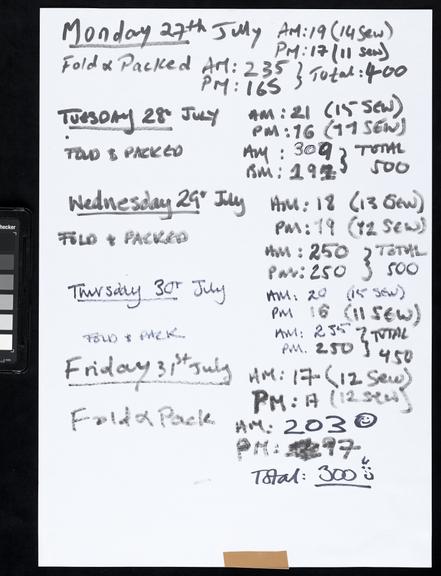 Monday 27th July AM: 19 (14 Sew)
PM: 17 (11 sew)
Fold & Packed AM: 235 } Total: 400
PM: 165
TUESDAY 28 July AM: 21 (15 SEW)
PM: 16 (11 SEW)
FOLD & PACKED AM: 309 } TOTAL
PM: 191 500
Wednesday 29 July AM: 18 (13 Sew)
PM: 19 (12 SEW)
FOLD & PACKED
AM: 250 } TOTAL
PM: 250 500
Thursday 30 July AM: 20 (15 SEW)
PM 16 (11 SEW)
FOLD & PACK AM: 235 } TOTAL
PM. 250 450
Friday 31st July AM: 17 (12 Sew)
PM: 17 (12 sew)
Fold & Pack AM: 203
PM: 97
Total: 300
checker